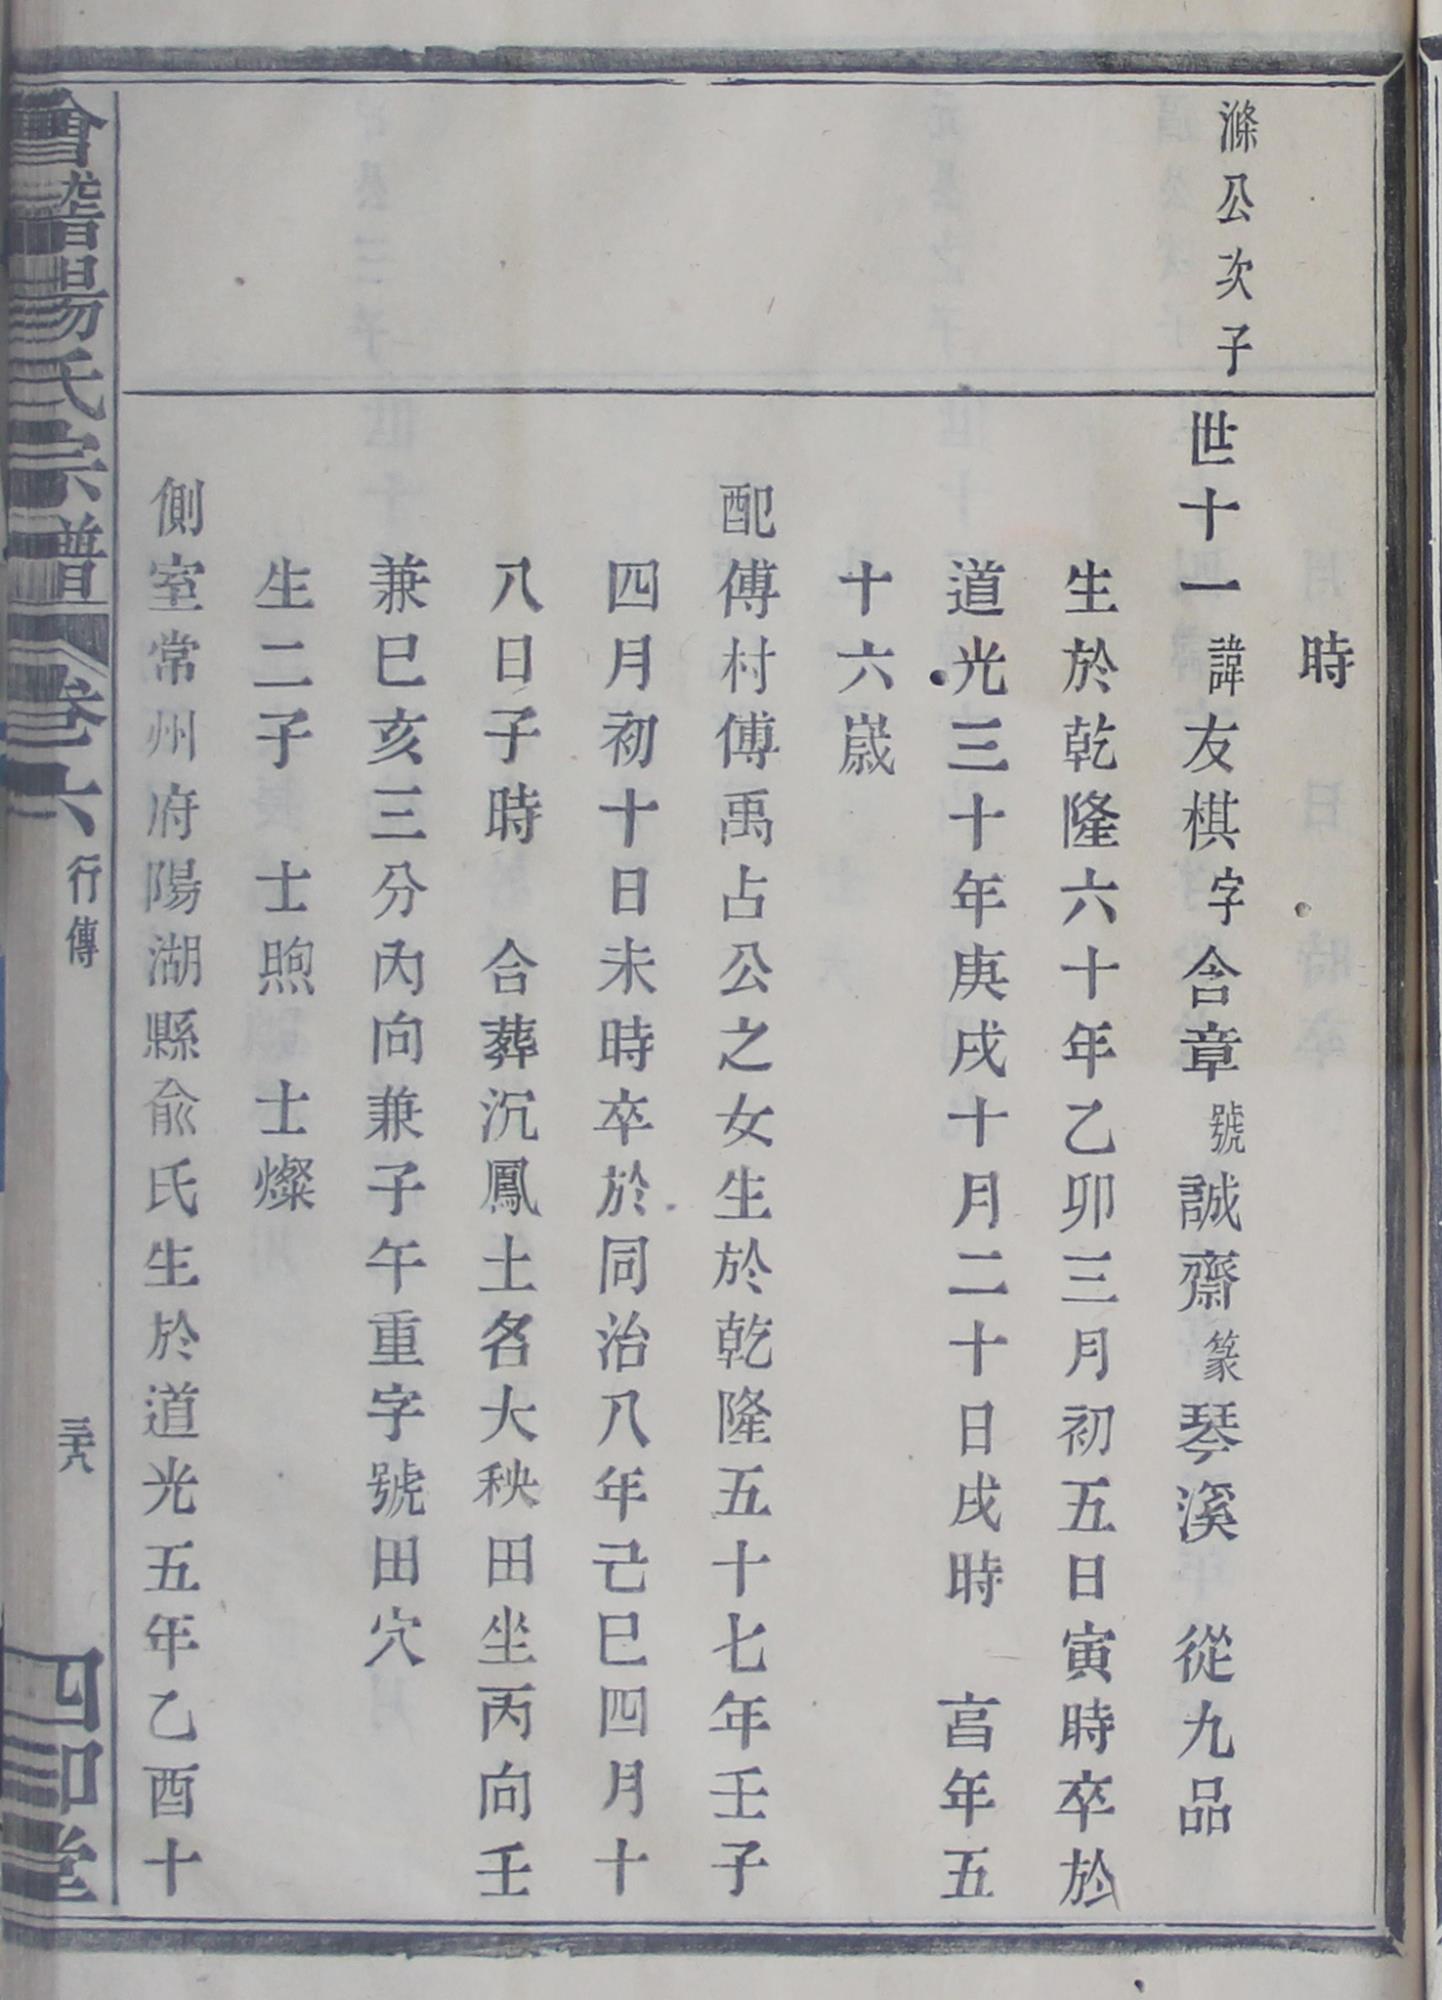 時
滌公次子
世十一諱友棋字含章號誠齋篆琴溪　從九品
生於乾隆六十年乙卯三月初五日寅時卒於
道光三十年庚戌十月二十日戌時　亯年五
十六嵗
配傅村傅禹占公之女生於乾隆五十七年壬子
四月初十日未時卒於同治八年己巳四月十
八日子時　合葬沉鳳土名大秧田坐丙向壬
兼巳亥三分內向兼子午重字號田穴
生二子　士煦　士燦
側室常州府陽湖縣兪氏生於道光五年乙酉十
會稽楊氏宗譜　卷六　行傳　三十八　四知堂